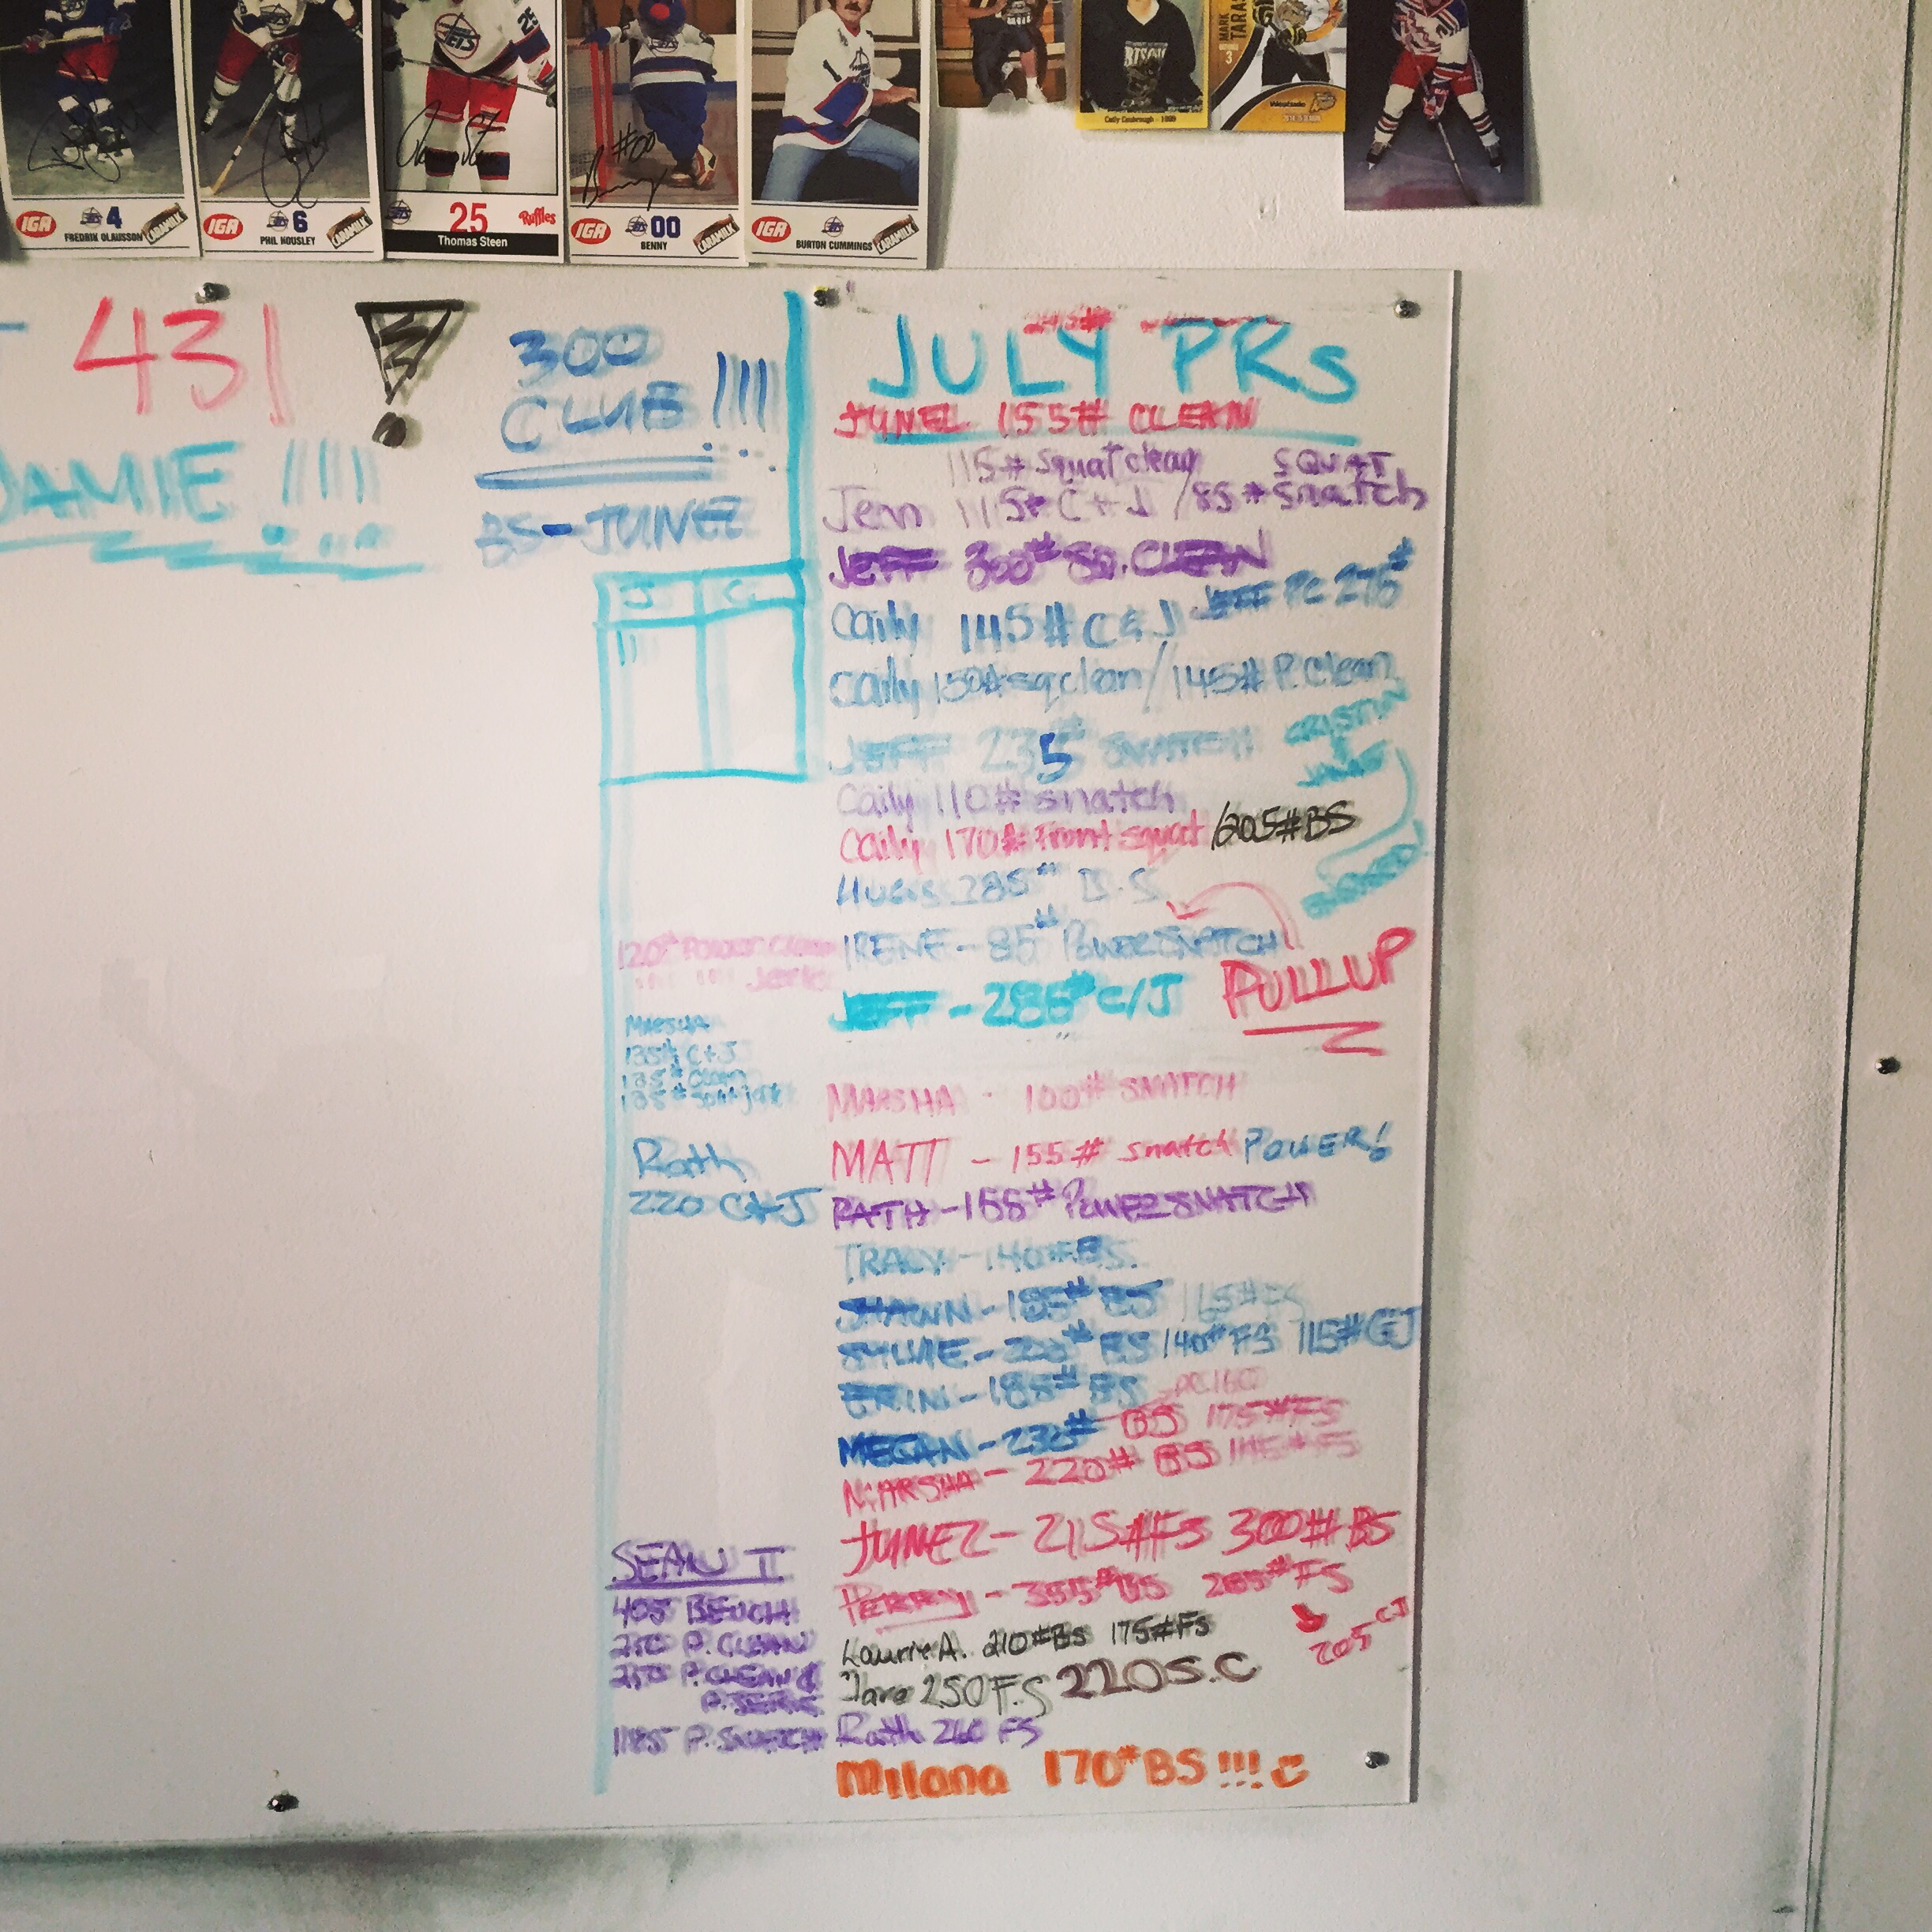 IGA 4 FREDRIK OLAUSSON CARAMILK
IGA 6 PHIL HOUSLEY CARAMILK
JETS 25 Ruffles
Thomas Steen
#00
IGA 00 BENNY CARAMILK
IGA BURTON CUMMINGS CARAMILK
BISON
MARK
3
431 !
JAMIE !!!!
300
CLUB !!!!
BS-JUNEZ
J C
JULY PRs
JUNEZ 155# CLEAN
115# Squat clean SQUAT
Jenn 115# C+J /85# Snatch
JEFF 300# SQ. CLEAN
JEFF PC 275#
Caily 145# C&J
Caily 150# sq clean/145# P. Clean
JEFF 235# SNATCH
CRISTIN
&
Caily 110# snatch
Caily 170# Front squat /205#BS
285# B.S
IRENE - 85# POWER SNATCH
PULLUP
120# Power Clean
" " Jerk
JEFF - 285# C/J
MARSHA
135# C+J
135# Clean
135# Split jerk
MARSHA - 100# SNATCH
MATT - 155# snatch POWER!
Rath
220 C&J
RATH - 155# POWER SNATCH
TRACY - 140# BS.
SHAWN - 185# BS 165#FS
SYLVIE - 220# BS 140# FS 115# C&J
ERIN - 185# BS PC 160
MEGAN - 230# BS 175#FS
MARSHA - 220# BS 145#FS
JUNEZ - 215#FS 300# BS
PERRY - 355#BS 285# FS
205 CJ
Laurie A. 210#BS 175#FS
250 F.S 220 S.C
Rath 260 FS
Milana 170# BS !!!
SEAN T
405 BENCH
250 P. CLEAN
250 P. CLEAN &
P. JERK
185 P. SNATCH